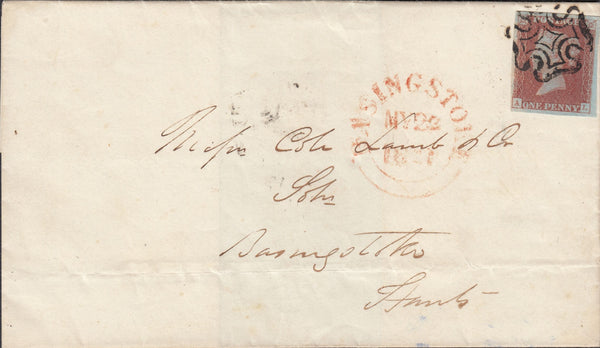 A L
ONE PENNY
BASINGSTOKE
MY 22
Messrs Cole Lamb & Co
Solrs
Basingstoke
Hants